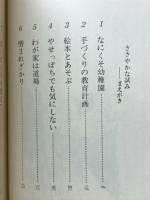 ささやかな試み
――まえがき
1 なにくそ幼稚園
2 手づくりの教育計画
3 絵本とあそぶ
4 やせっぽちでも気にしない
5 わが家は道場
6 憎まれざかり